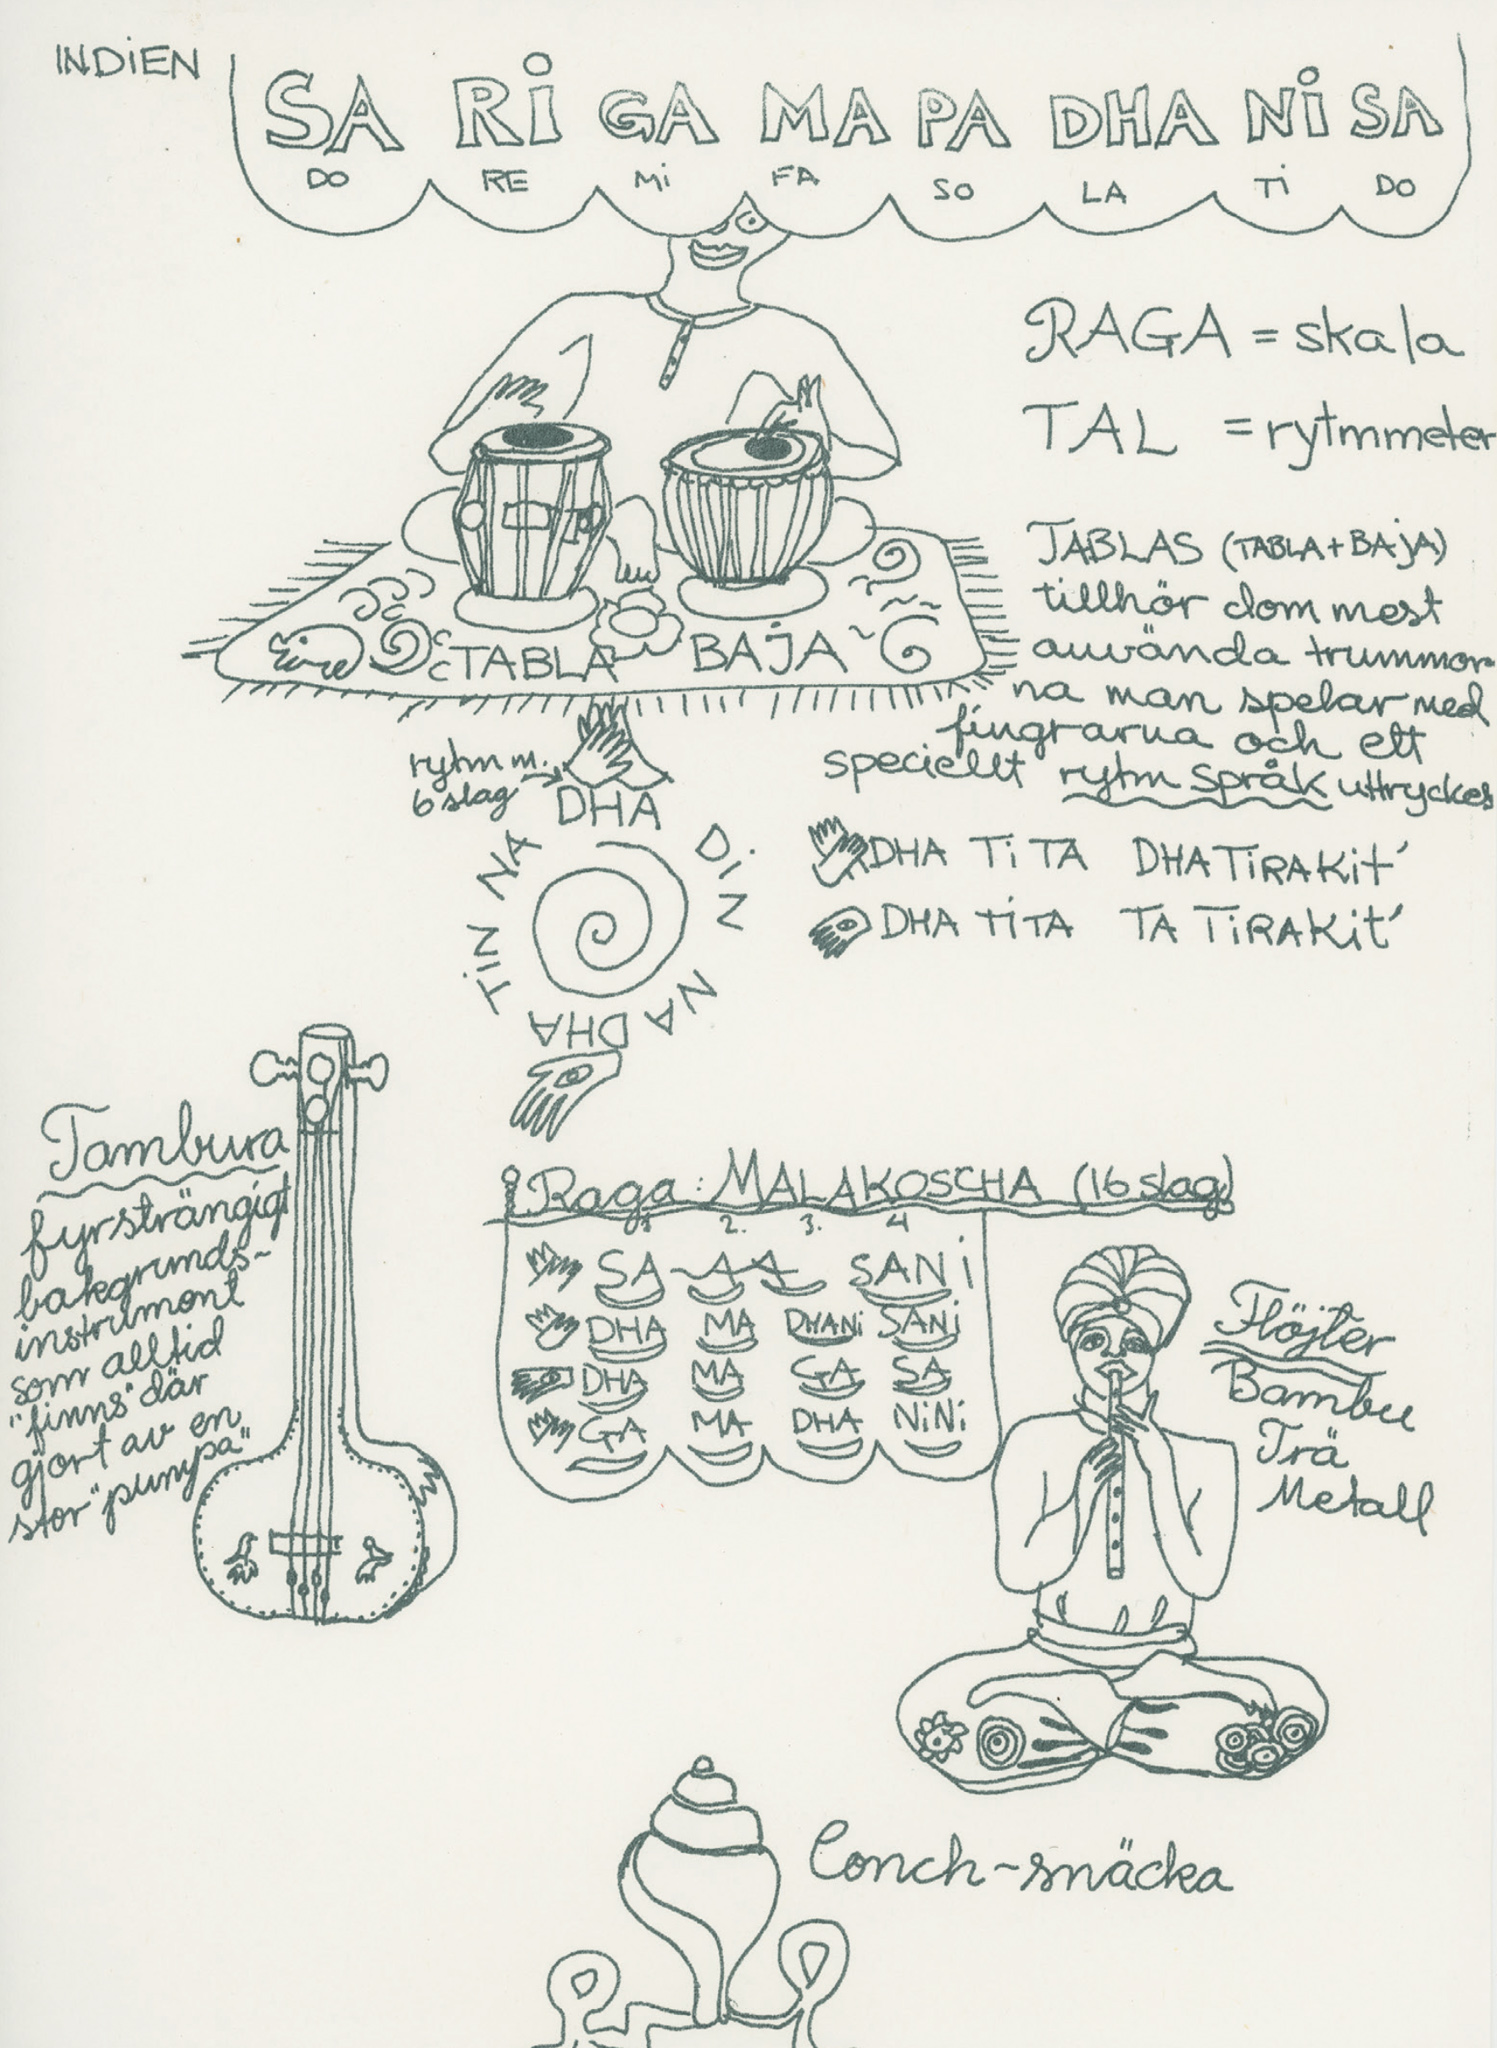 INDiEN
SA Ri GA MA PA DHA Ni SA
DO RE Mi FA SO LA Ti DO
RAGA = skala
TAL = rytmmeter
TABLAS (TABLA + BAJA)
tillhör dom mest
använda trummor-
na man spelar med
fingrarna och ett
speciellt rytm språk uttryckes
TABLA BAJA
rytm m.
6 slag
DHA DiN NA DHA TiN NA
DHA Ti TA DHATiRAKit'
DHA TiTA TA TiRAKit'
Tambura
fyrsträngigt
bakgrunds-
instrument
som alltid
"finns" där
gjort av en
stor "pumpa"
Raga: MALAKOSCHA (16 slag)
1 2. 3. 4
SA-A-A SANi
DHA MA DHANi SANi
DHA MA GA SA
GA MA DHA NiNi
Flöjter
Bambu
Trä
Metall
Conch-snäcka